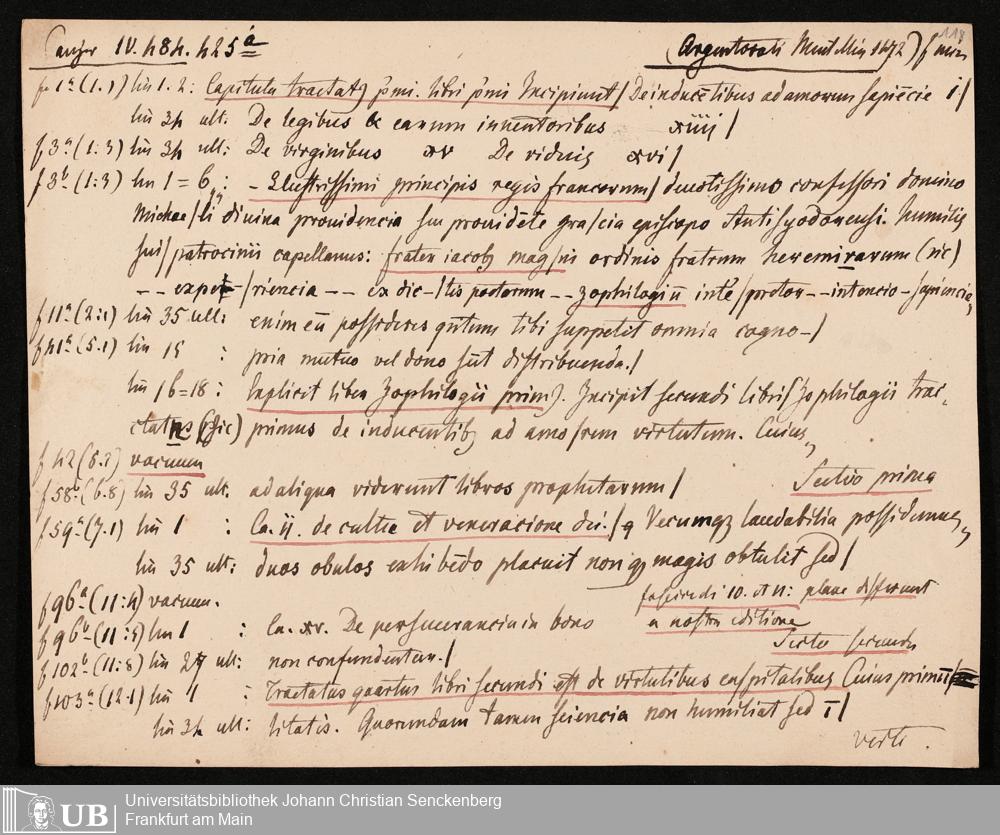 IV. 484. 425ᵃ (Argentorati Ment Min 1472) f min 118
fo 1ᵃ (1.1) lin 1. 2: Capitula tractatꝰ p̄mi. libri p̄mi Incipiunt / De inducētibus ad amorem sapiēcie i /
lin 34 ult: De legibus & earum inuentoribus xiiij /
f 3ᵃ (1:3) lin 34 ult: De virginibus xv De viduis xvi /
f 3ᵇ (1:3) lin 1=6: – Illustrissimi principis regis francorum / deuotissimo confessori domino
Michae/li diuina prouidencia sen prouidēte gra/cia episcopo Antisyodorensi. humilis
sui / patrocinii capellanus: frater iacobꝰ mag/ni ordinis fratrum heremirarum (sic)
-- expe-/riencia -- ex dic-/tis poetarum -- zophilogiū inte/pretor -- intencio - sapiencia,,
f 11ᵃ (2:1) lin 35 ult: enim eū possideres qūtum tibi suppetit omnia cogno-/
f 41ᵃ (5.1) lin 15 : pria mutuo vel dono sūt distribuenda. /
lin 16=18: Explicit liber Zophilogii primꝰ. Incipit secundi libri / Zophilogii trac-
tatus (sic) primus de inducentibꝫ ad amo/rem virtutum. Cuius,,
f 42 (5.2) vacuum
f 58ᵇ (6.8) lin 35 ult. ad aliqua viderunt libros prophetarum / Sectio prima
f 59ᵃ (7.1) lin 1 : Ca. ij. de cultu et veneracione dei. / q Vecumqꝫ laudabilia possidemus,,
lin 35 ult: duos obulos exhibēdo placuit non qꝫ magis obtulit sed /
f 96ᵃ (11:4) vacuum. fasciculi 10. et 11: plane differunt
f 96ᵇ (11:5) lin 1 : Ca. xv. De perseuerancia in bono a nostra editione
f 102ᵇ (11:8) lin 27 ult: non confundentur. / Sectio secunda
f 103ᵃ (12.1) lin 1 : Tractatus quartus libri secundi est de virtutibus cuspitalibus Cuius primū /
lin 34 ult: litatis. Quorundam tamen sciencia non humiliat sed ī /
verte.
Universitätsbibliothek Johann Christian Senckenberg
Frankfurt am Main
UB